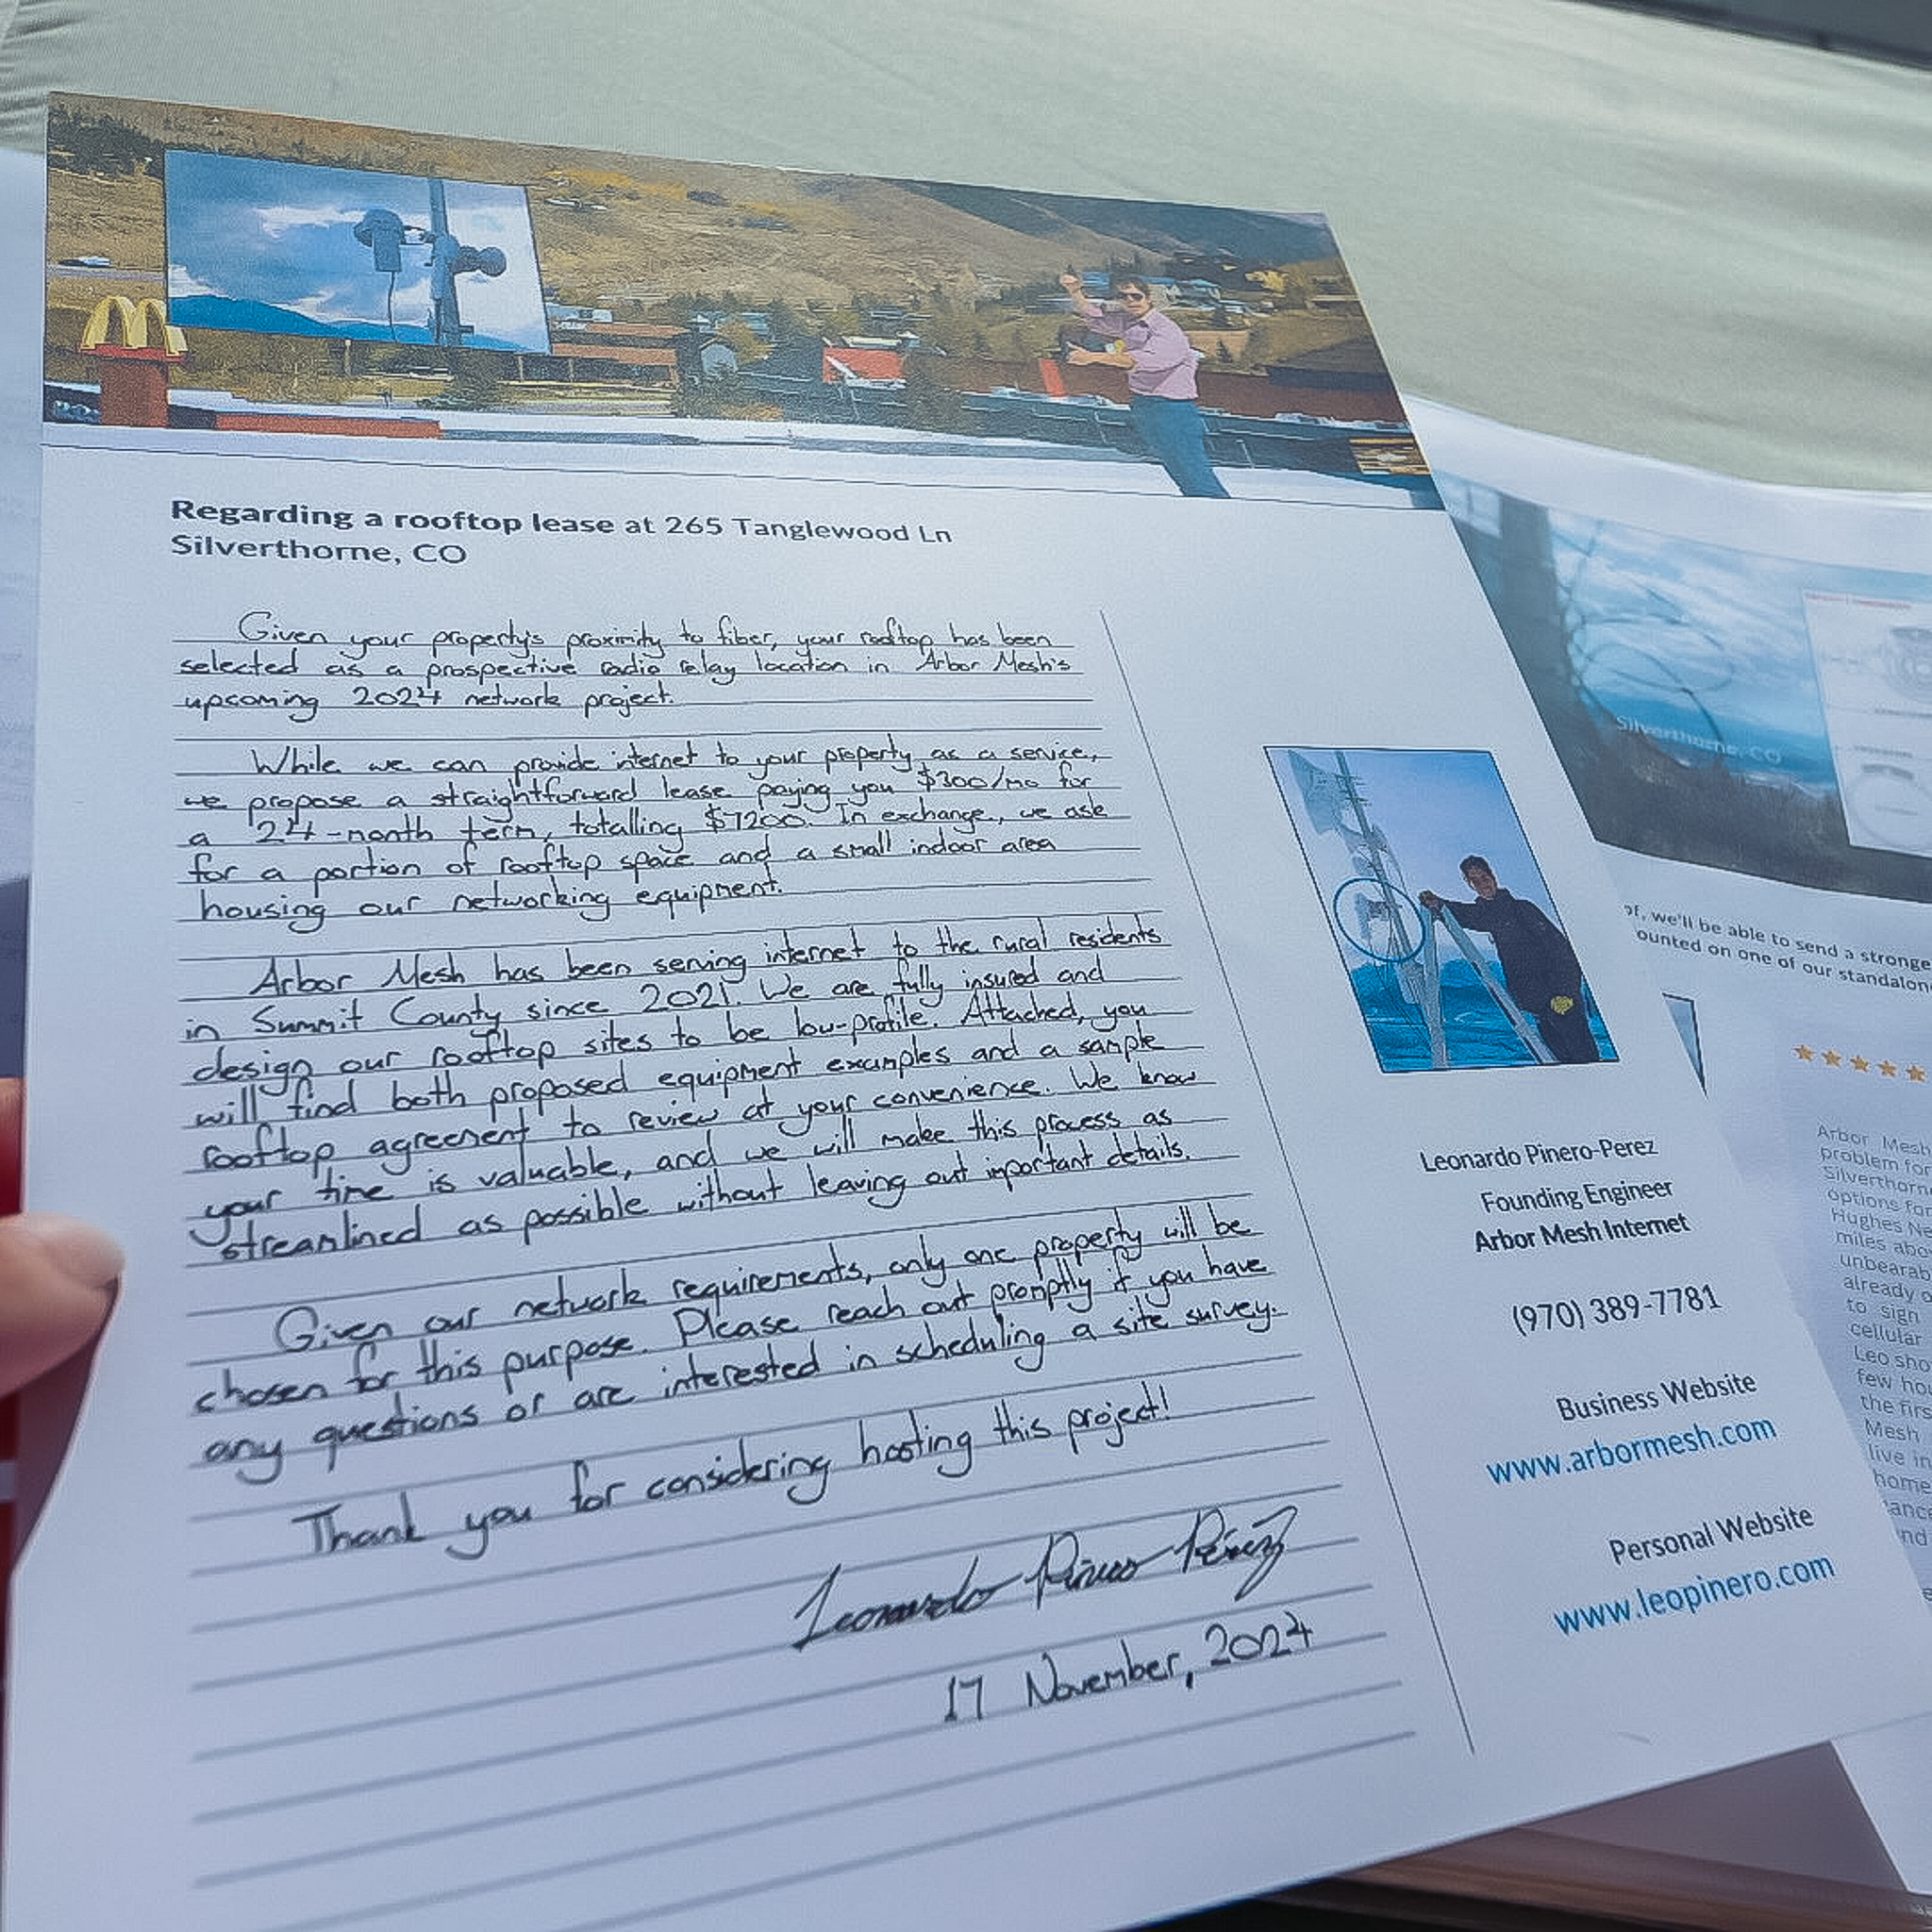 Regarding a rooftop lease at 265 Tanglewood Ln
Silverthorne, CO
Given your property's proximity to fiber, your rooftop has been
selected as a prospective radio relay location in Arbor Mesh's
upcoming 2024 network project.
While we can provide internet to your property as a service,
we propose a straightforward lease paying you $300/mo for
a 24-month term, totalling $7200. In exchange, we ask
for a portion of rooftop space and a small indoor area
housing our networking equipment.
Arbor Mesh has been serving internet to the rural residents
in Summit County since 2021. We are fully insured and
design our rooftop sites to be low-profile. Attached, you
will find both proposed equipment examples and a sample
rooftop agreement to review at your convenience. We know
your time is valuable, and we will make this process as
streamlined as possible without leaving out important details.
Given our network requirements, only one property will be
chosen for this purpose. Please reach out promptly if you have
any questions or are interested in scheduling a site survey.
Thank you for considering hosting this project!
Leonardo Pinero Pérez
17 November, 2024
Leonardo Pinero-Perez
Founding Engineer
Arbor Mesh Internet
(970) 389-7781
Business Website
www.arbormesh.com
Personal Website
www.leopinero.com
Silverthorne, CO
we'll be able to send a stronge
ounted on one of our standalon
Arbor Mesh
problem for
Silverthorn
options for
Hughes Ne
miles abo
unbearab
already o
to sign
cellular
Leo sho
few ho
the firs
Mesh
live in
home